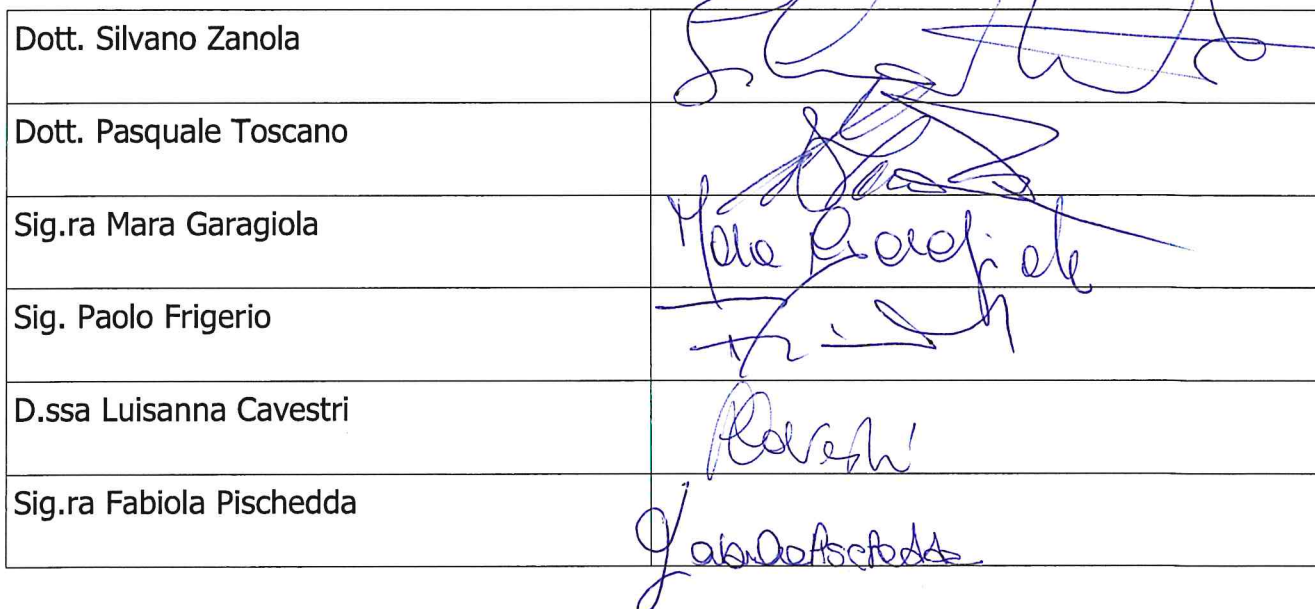 Dott. Silvano Zanola
Dott. Pasquale Toscano
Sig.ra Mara Garagiola
Mara Garagiola
Sig. Paolo Frigerio
D.ssa Luisanna Cavestri
LCavestri
Sig.ra Fabiola Pischedda
Fabiola Pischedda